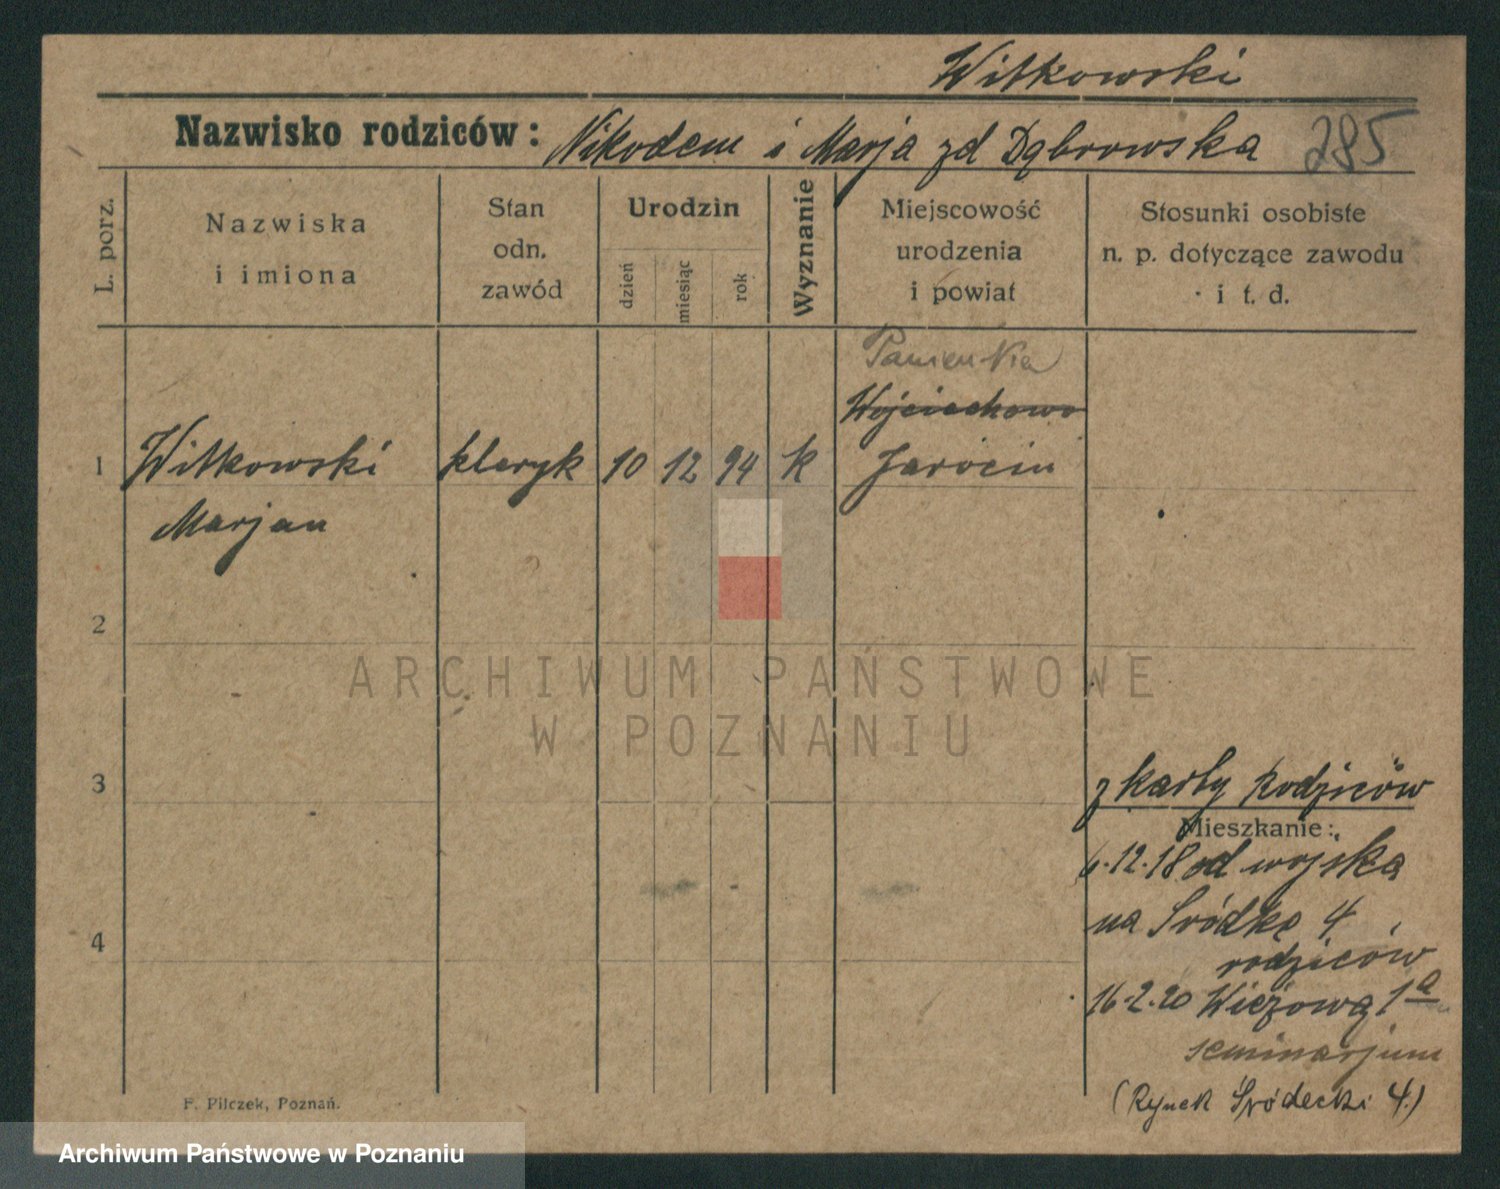 Witkowski
Nazwisko rodziców: Nikodem i Marja zd Dąbrowska 285
L. porz.
Nazwiska
i imiona
Stan
odn.
zawód
Urodzin
dzień
miesiąc
rok
Wyznanie
Miejscowość
urodzenia
i powiat
Stosunki osobiste
n. p. dotyczące zawodu
i t. d.
Panienka
Wojciechowo
1 Witkowski kleryk 10 12 94 k Jarocin
Marjan
2
ARCHIWUM PAŃSTWOWE
W POZNANIU
3
z karty rodziców
Mieszkanie:
6.12.18 od wojska
na Śródkę 4
4
rodziców
16.2.20 Wieżowa 1a
seminarjum
(Rynek Śródecki 4.)
F. Pilczek, Poznań.
Archiwum Państwowe w Poznaniu